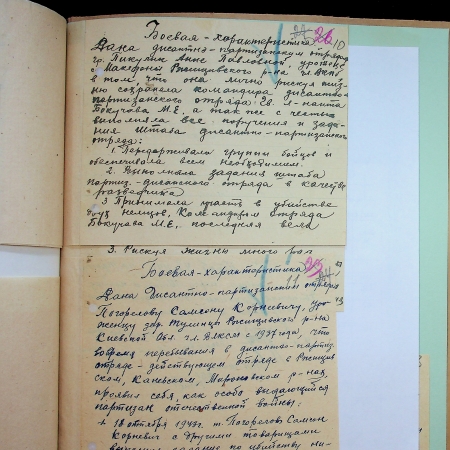 Боевая-характеристика 26
Дана дисантно-партизанским отрядом
гр. Пикулик Анне Павловной, урожено
с. Македоны Ржищевского р-на
в том что она лично рискуя жиз
нью сохранила командира дисантно-
партизанского отряда: Гв. л-нанта
Бокучова М.Е. а так же с честью
выполняла все поручения и зада-
ния штаба дисантно-партизанского
отряда:
1. Передерживала группы бойцов и
обеспечивала всем необходимым.
2. Выполняла задания штаба
партиз.-дисантного отряда в качестве
разведчика
3 Принимала участь в убийстве
двух немцов, Командиром отряда
Бокучава М.Е., последняя вела
3. Рискуя жизни много раз
Боевая-характеристика 25
Дана Дисантно-партизанским отрядом
Погорелову Самсону Корнеевичу, уро-
женцу Ржищевского р-на
Киевской обл. чл. ВЛКСМ с 1937 года, что
вовремя перебывания в дисантно-партиз.
отряде - действующем отряде в Ржищев
ском, Каневском, Мироновском р-нах,
проявил себя, как особо выдающийся
партизан отечественной войны:
18 октября 1943г. т. Погорелов Самсон
Корневич с другими товарищами
выполнил задание по убийству ни-